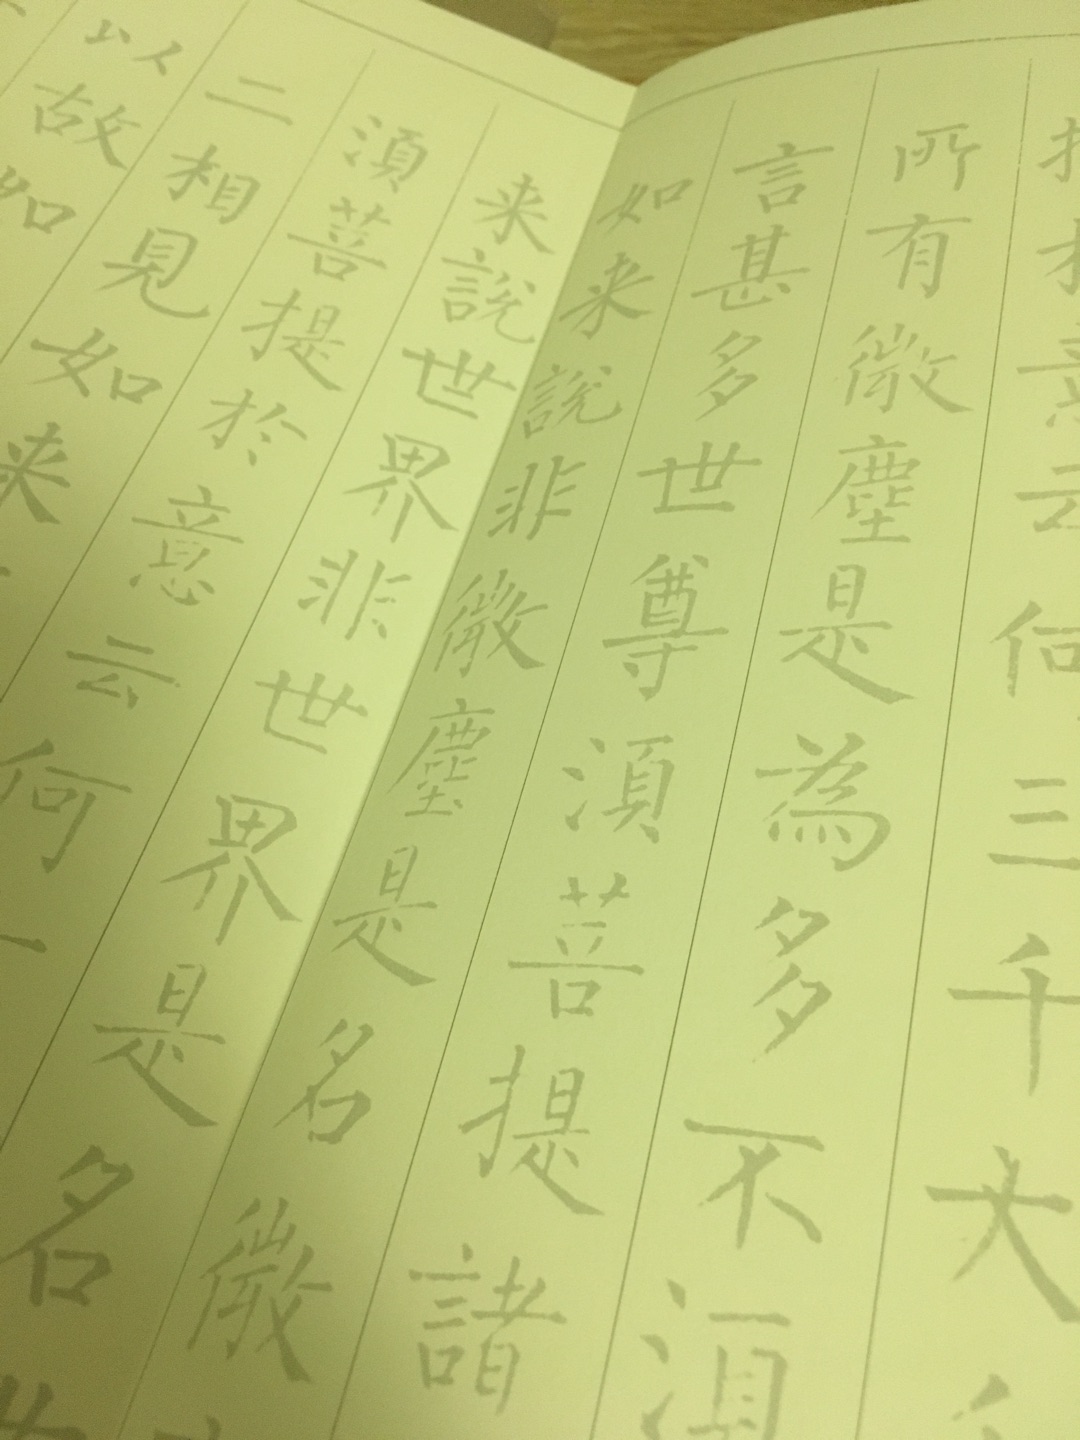 意云何三千大
所有微塵是為多不須
言甚多世尊須菩提諸
如来說非微塵是名微
来說世界非世界是名
須菩提於意云何
二相見如来
以故如